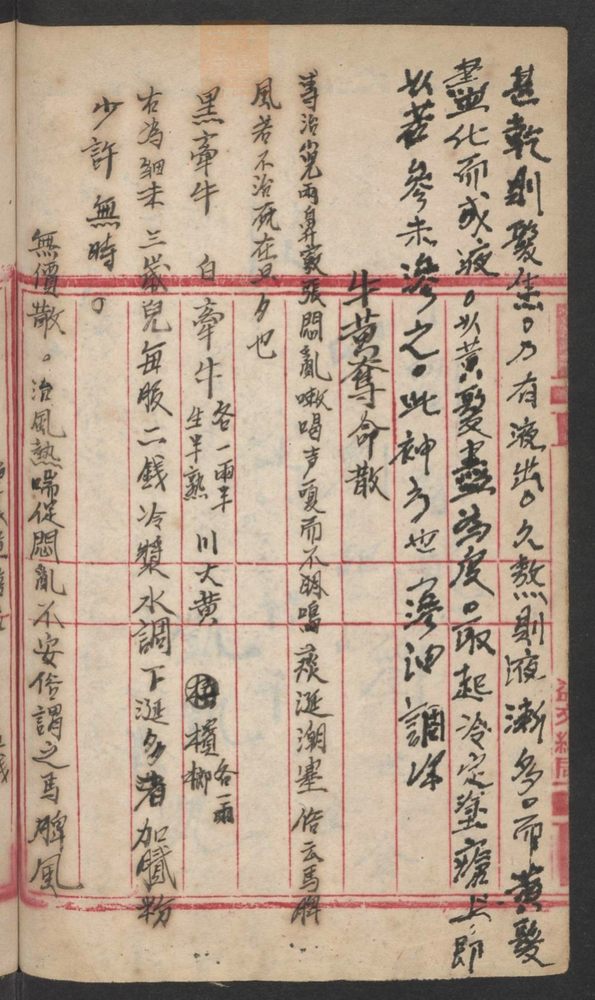 甚乾則髮焦。乃有液出。久熬則液漸多。而黃髮
盡化而成液。以黃髮盡為度。取起冷定塗瘡上。即
以苦參末滲之。此神方也 滲油調塗
牛黃奪命散
專治小兒兩鼻竅張悶亂嗽喝声嗄而不能鳴痰涎潮塞俗云馬脾
風若不治死在旦夕也
黑牽牛 白牽牛 各一兩半 生半熟 川大黃 檳榔 各一兩
右為細末三歲兒每服二錢冷漿水調下涎多者加膩粉
少許無時。
無價散。治風熱喘促悶亂不安俗謂之馬脾風